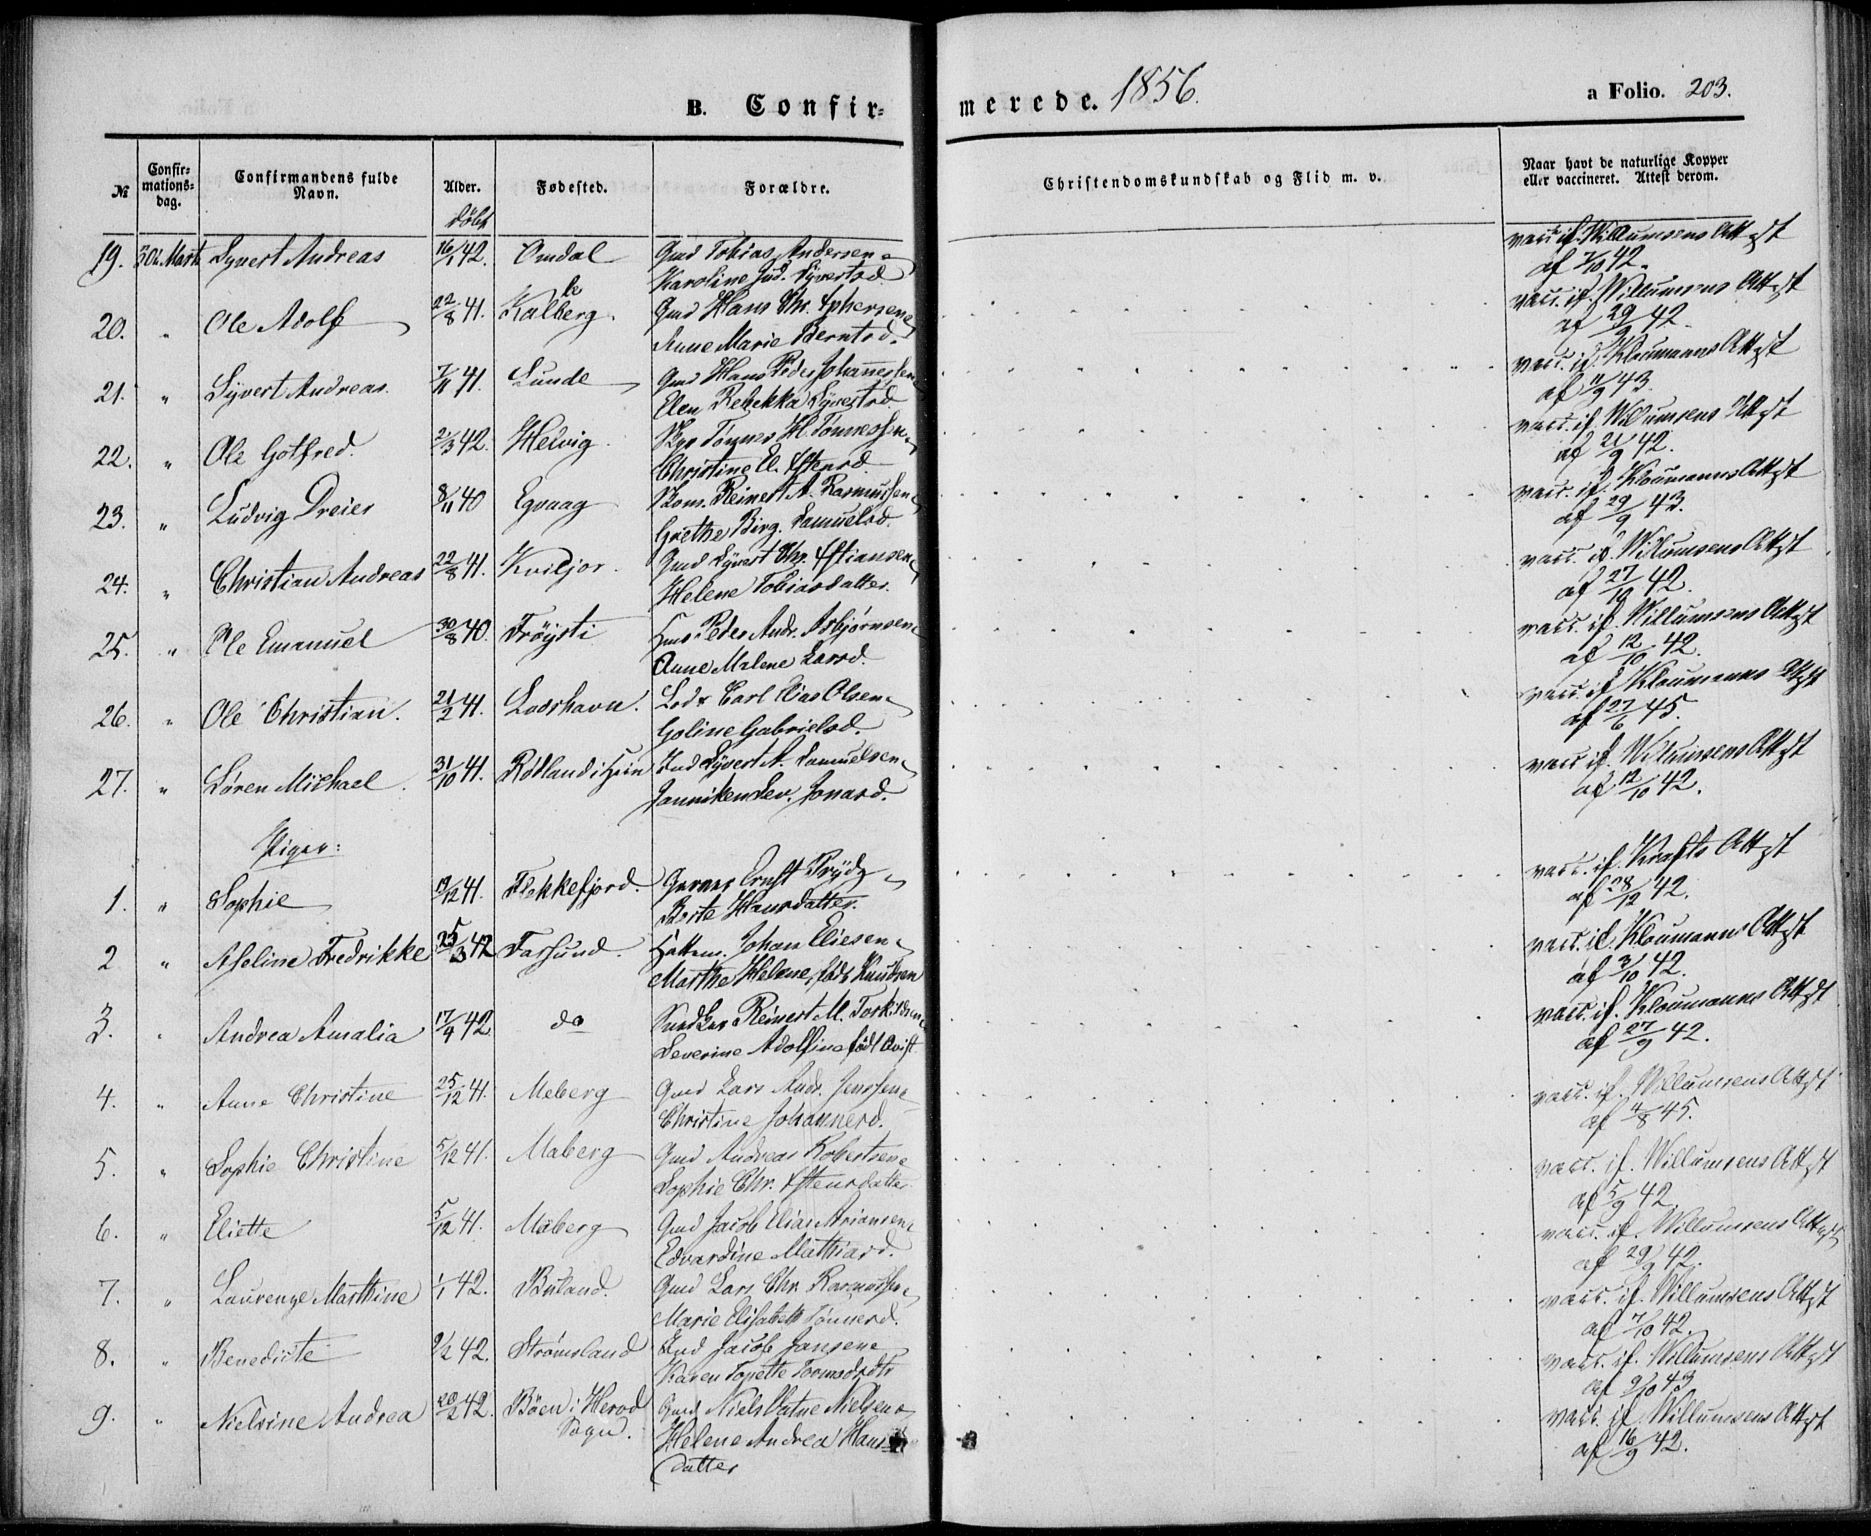 B. Confirmerede. 1856.
a Folio. 203.
№
Confirmations-dag.
Confirmandens fulde Navn.
Alder.
døbt
Fødested.
Forældre.
Christendomskundskab og Flid m. v.
Naar havt de naturlige Kopper eller vaccineret. Attest derom.
19. Marts Syvert Andreas 16/1 42. Omdal Gmd Tobias Andersen
Karoline Syvertsd
vacc. if. Willumsens Attest
af 7/10 42.
20. " Ole Adolf 22/8 41. Kalleberg. Gmd Hans Chr.
Anne Marie Berntsd.
vacc. if. Willumsens Attest
af 29/9 42.
21. " Syvert Andreas. 7/11 41. Lunde Gmd Hans Peder Johannessen
Elen Rebekka Syvertsd
vacc. if. Kloumanns Attest
af 11/9 43.
22. " Ole Gotfred. 2/3 42. Helvig Tönnes H. Tönnessen
Christine El.
vacc. if. Willumsens Attest
af 21/9 42.
23. " Ludvig Dreier 8/11 40 Egvaag Reinert A. Rasmussen
Grethe Birg. Samuelsd.
vacc. if. Kloumanns Attest
af 29/9 43.
24. " Christian Andreas 22/8 41. Kviljor. Gmd Syvert Chr.
Helene Tobiasdatter.
vacc. if. Willumsens Attest
af 27/10 42.
25. " Ole Emanuel 30/8 40. Fröysti Peder Andr. Asbjørnsen
Anne Malene Larsd.
vacc. if. Willumsens Attest
af 12/10 42.
26. " Ole Christian. 21/2 41. Lodshavn. Lods Carl Elias Olsen
Goline Gabrielsd.
vacc. if. Kloumanns Attest
af 27/6 45.
27. " Søren Michael. 31/10 41. Rødland i Syvert A. Samuelsen
Janniken Sev. Jonasd.
vacc. if. Willumsens Attest
af 12/10 42.
Piger:
1. " Sophie 19/12 41. Flekkefjord. Garver Ernst Prydz
Berte Hansdatter.
vacc. if. Krafts Attest
af 28/12 42.
2 " Aseline Fredrikke 25/3 42 Farsund. Johan Eliesen
Marthe Helene, født Knudsen
vacc. if. Kloumanns Attest
af 3/10 42.
3. " Andrea Amalia 17/4 42 do Reinert M. Torkildsen
Severine Adolfine født Qvist
vacc. if. Kloumanns Attest
af 27/9 42.
4. " Anne Christine 25/12 41. Meberg Gmd Lars Andr. Jenssen
Christine Johannesd.
vacc. if. Willumsens Attest
af 4/8 45.
5. " Sophie Christine 5/12 41. Maberg Gmd Andreas Robertsen
Sophie Chr.
vacc. if. Willumsens Attest
af 5/9 42.
6. " Eliette 5/12 41. Maberg Gmd Jacob Elias Ariansen
Edvardine Mathiasd.
vacc. if. Willumsens Attest
af 29/9 42.
7. " Laurenze Marthine 1/1 42. Buland. Gmd Lars Chr. Rasmussen
Marie Elisabeth Tønnesd.
vacc. if. Willumsens Attest
af 7/10 42.
8. " Benedicte 2/2 42. Strømsland Jacob Jansen
Karen Tonette
vacc. if. Willumsens Attest
af 9/10 43
9. " Nielsine Andrea 20/2 42. Böen i Herad Sogn. Gmd Niels Vatne Nielsen
Helene Andrea Hansdatter
vacc. if. Willumsens Attest
af 16/9 42.